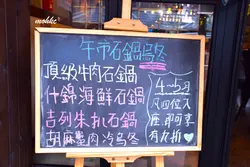 mohkc
午市石鍋烏冬
頂級牛肉石鍋
什錦海鮮石鍋
吉列朱扒石鍋
胡麻蟹肉冷烏冬
4-5月
凡四位入
座即可享
有九折♥